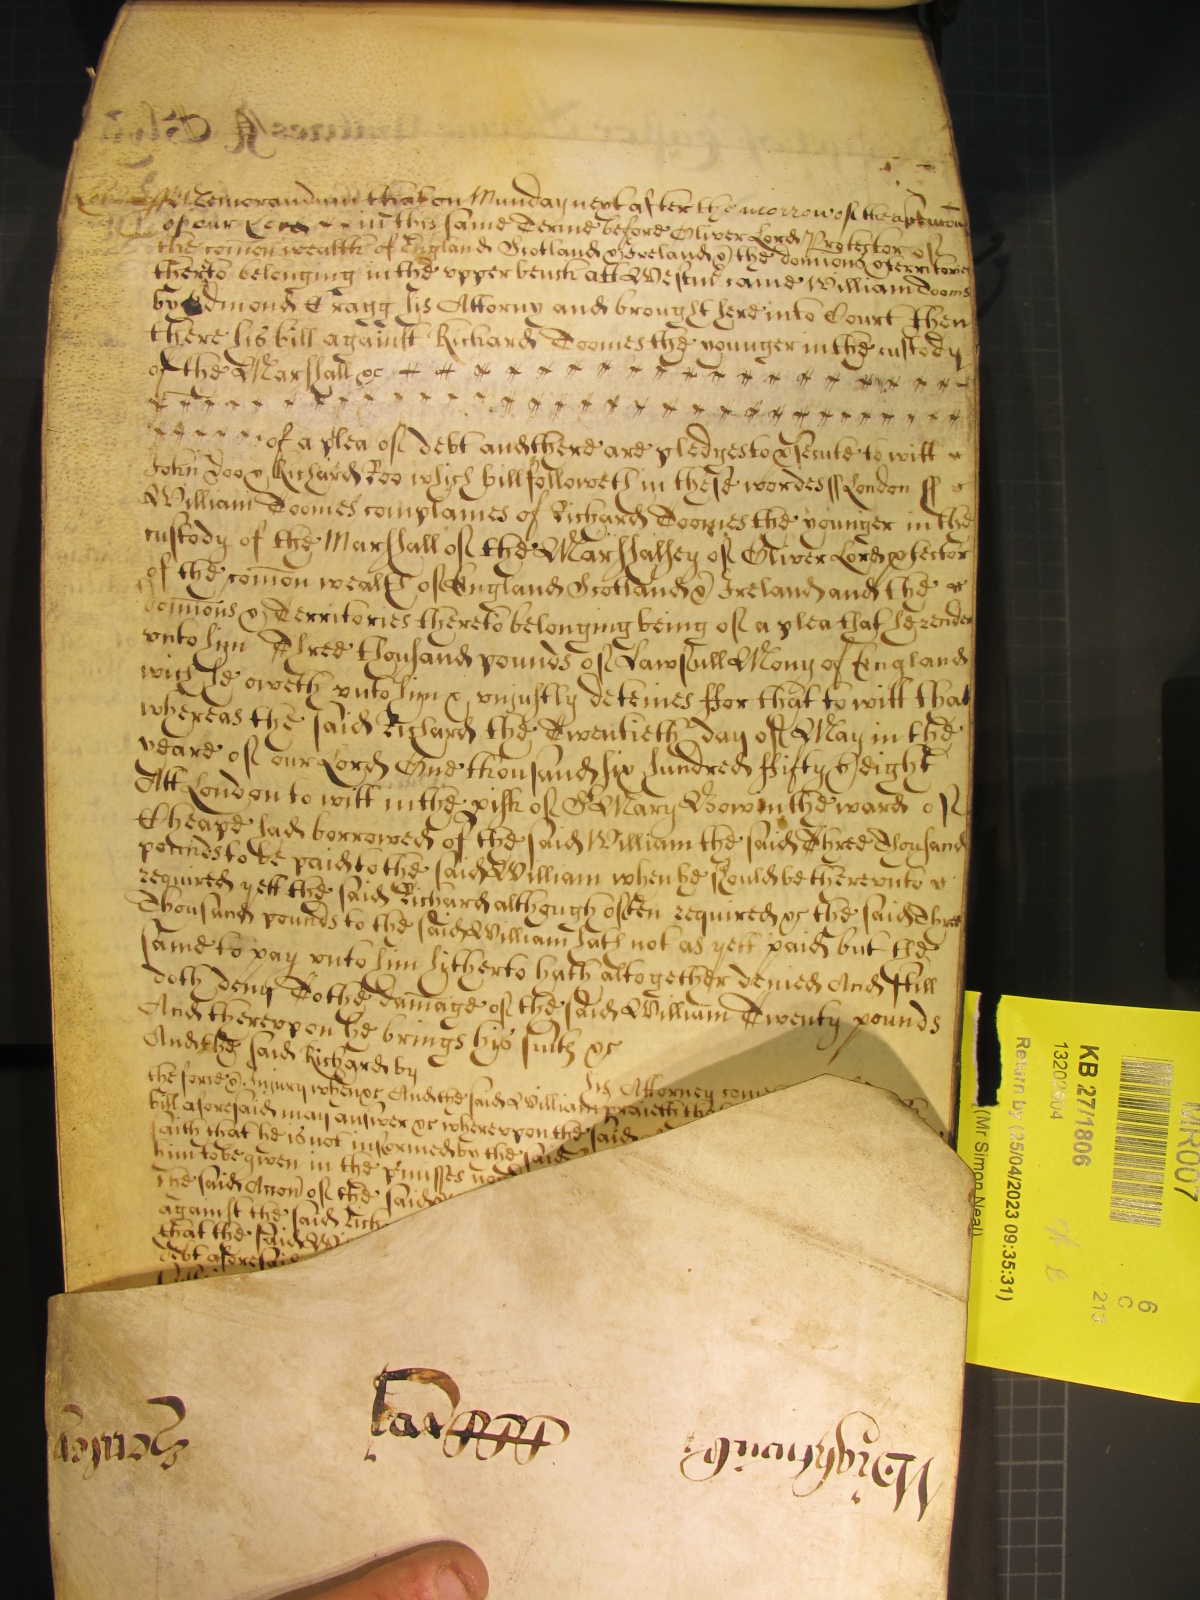 London ss Memorandum that on Munday next after the morrow of the ascencon
of our Lord in this same Terme before Oliver Lord Protector of
the comon wealth of England Scotland & Ireland & the dominions & territories
thereto belonging in the upper bench att Westmr came William Toomes
by Edmond Cragg his Attorny and brought here into Court then
there his bill against Richard Toomes the younger in the custody
of the Marshall &c
of a plea of debt and there are pledges to psecute to witt
John Doo & Richard Roo which bill followeth in these wordes ss London ss
William Toomes complaines of Richard Toomes the younger in the
custody of the Marshall of the Marshalsey of Oliver Lord ptector
of the comon wealth of England Scotland & Ireland and the
dominions & Territories thereto belonging being of a plea that he render
unto him Three thousand pounds of Lawfull Mony of England
wich he oweth unto him & unjustly deteines ffor that to witt that
whereas the said Richard the Twentieth day of May in the
yeare of our Lord One thousand six hundred ffifty & eight
Att London to witt in the pish of St Mary Bow in the ward of
Cheape had borrowed of the said William the said Three Thousand
pounds to be paid to the said William when he should be thereunto
required yett the said Richard although often required &c the said Three
Thousand pounds to the said William hath not as yett paid but the
same to pay unto him hitherto hath altogether denied And still
doth deny To the damage of the said William Twenty pounds
And thereupon he brings his suith &c
And the said Richard by his Attorney
the force & Injury when &c And the said William praieth
bill aforesaid may answer &c whereupon the said
saith that he is not informed by the said
him to be given in the pmisses
the said Attorn of the said
against the said Rich
that the said Wi
debt aforesaid
Wightwick
KB 27/1806
13203904
Return by (25/04/2023 09:35:31)
(Mr Simon Neal)
MR007
6
C
213